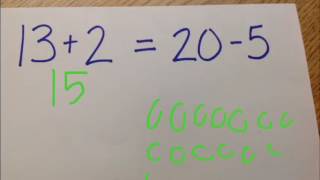 13+2 = 20-5
15